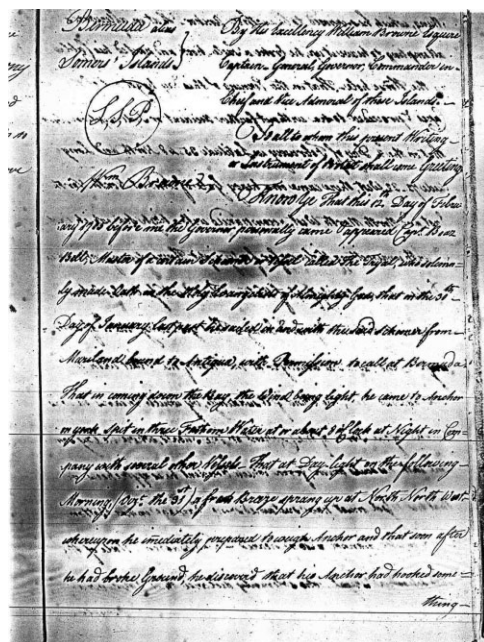 Bermuda alias By his Excellency William Browne Esquire
Somers Islands} Captain General, Governor, Commander in
Chief and Vice Admiral of these Islands.
L.S.P.
To all to whom this present Writing
or Instrument of shall come Greeting
Know Ye That this 12. Day of Febru
ary 1785 before me the Governor personally came & appeared Capt. Benz
Ball, Master of a certain Schooner or Vessel called the and solemn
ly made Oath on the Holy Evangelists of Almighty God, that on the 30th
Day of January last past he sailed in and with the said Schooner from
Maryland bound to Antigua, with Permission to call at Bermuda
That in coming down the Bay, the Wind being light, he came to Anchor
in york Spit in three Fathom Water at or about 8 o'Clock at Night in Com
pany with several other Vessels. That at Day-light on the following
Morning, (Vizt. the 31) a fresh Breeze sprang up at North North West
whereupon he imediately prepared to weigh Anchor and that soon after
he had broke Ground, he discover'd that his Anchor had hooked some
thing